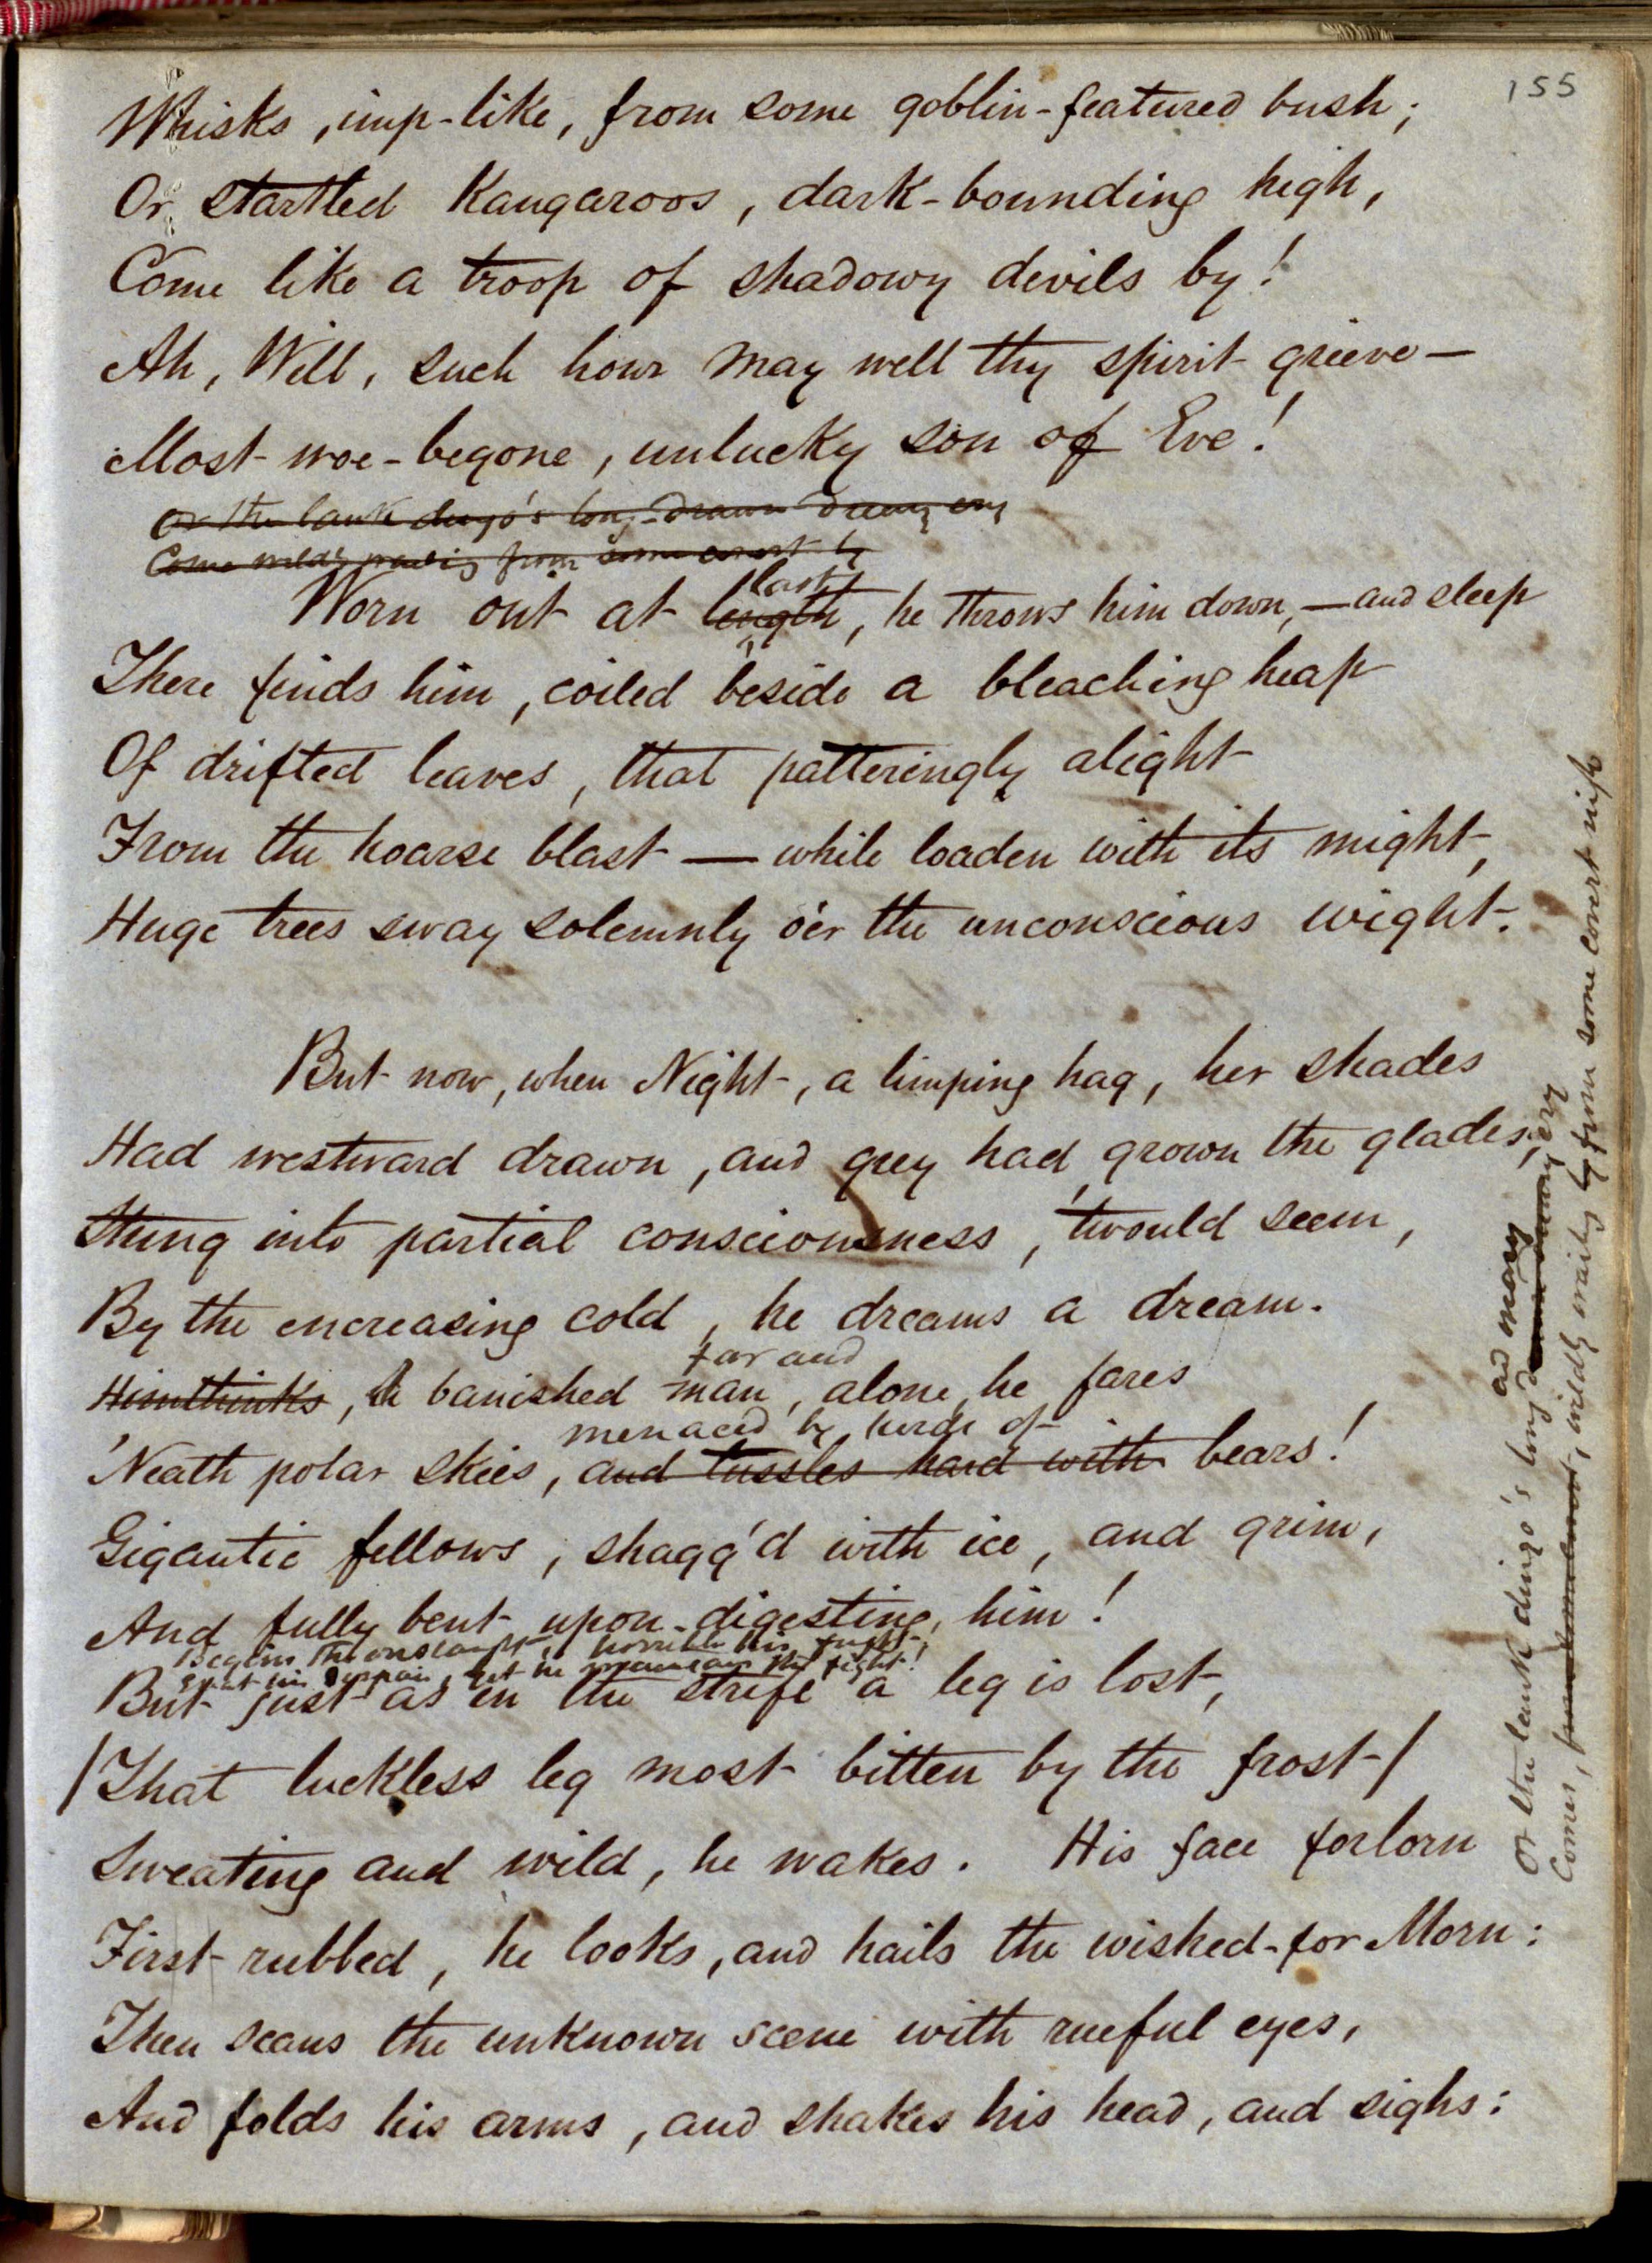 155
Whisks, imp-like, from some goblin-featured bush;
Or startled Kangaroos, dark-bounding high,
Come like a troop of shadowy devils by!
Ah, Will, such hour may well thy spirit grieve—
Most woe-begone, unlucky son of Eve!
Or the lank dingo's long-drawn dreary cry
Come wildly wailing from some covert by
last
Worn out at length, he throws him down,—and sleep
There finds him, coiled beside a bleaching heap
Of drifted leaves, that patteringly alight
From the hoarse blast — while loaden with its might,
Huge trees sway solemnly o'er the unconscious wight.
But now, when Night, a limping hag, her shades
Had westward drawn, and grey had grown the glades,
Stung into partial consciousness, 'twould seem,
By the encreasing cold, he dreams a dream.
far and
Himthinks, A banished man, alone, he fares
menaced by herds of
'Neath polar skies, and tussles hard with bears!
Gigantic fellows, shagg'd with ice, and grim,
And fully bent upon digesting him!
Begins the onslaught, horrible his fright,
Great his despair, yet he maintains the fight!
But just as in the strife a leg is lost,
/That luckless leg most bitten by the frost/
Sweating and wild, he wakes. His face forlorn
First rubbed, he looks, and hails the wished-for Morn:
Then scans the unknown scene with rueful eyes,
And folds his arms, and shakes his head, and sighs:
and many
Or the lank dingo's long cry
Comes, wildly wailing by from some covert nigh